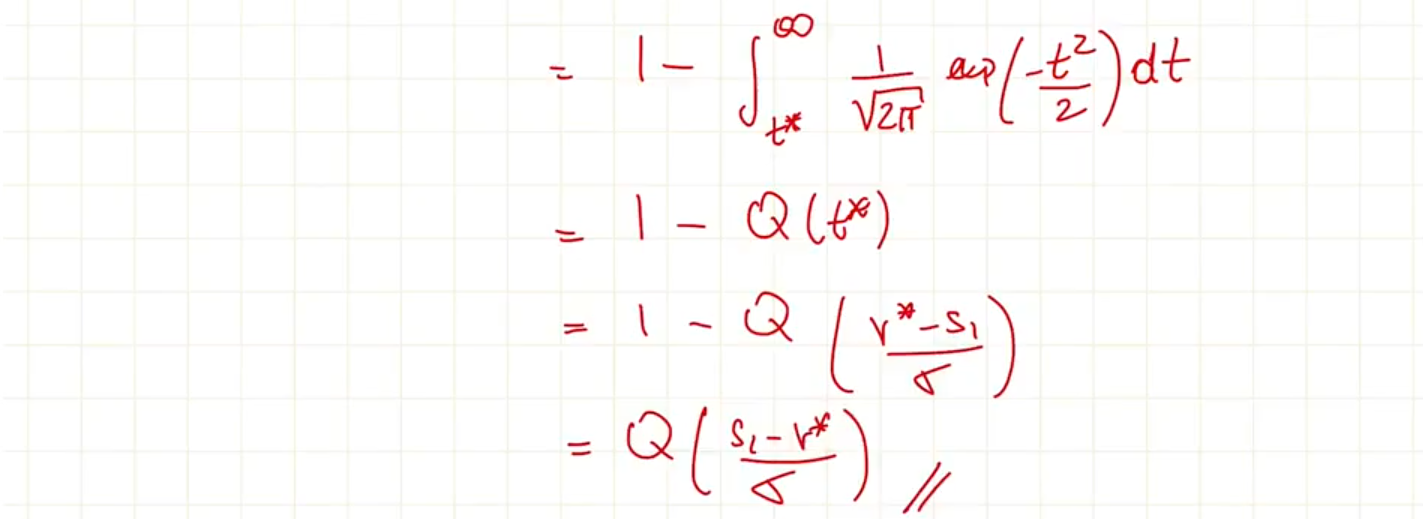 = 1 - ∫_{t*}^{∞} 1/√(2π) exp(-t²/2) dt
= 1 - Q(t*)
= 1 - Q((r* - s₁)/σ)
= Q((s₁ - r*)/σ) //